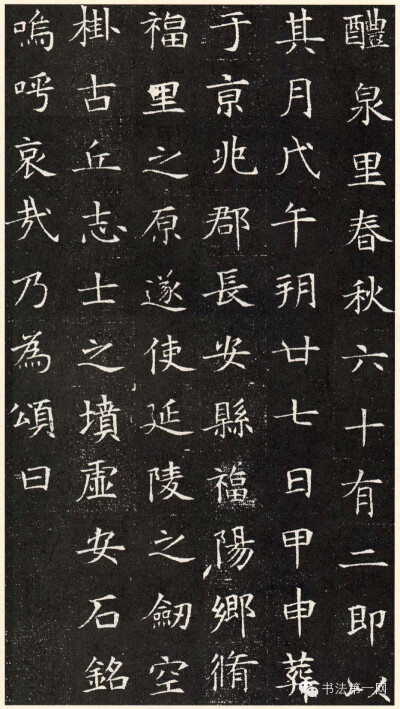 醴泉里春秋六十有二即以
其月戊午朔廿七日甲申葬
于京兆郡長安縣福陽鄉脩
福里之原遂使延陵之劒空
掛古丘志士之墳虛安石銘
嗚呼哀哉乃為頌曰
书法第一网